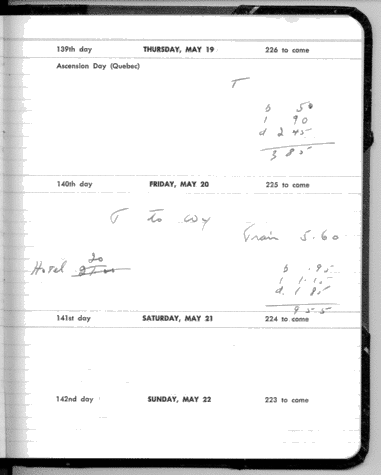 139th day THURSDAY, MAY 19 226 to come
Ascension Day (Quebec)
T
b 50
l 90
d 2 45
3 85
140th day FRIDAY, MAY 20 225 to come
T to
Train 5.60
Hotel 20
b .95
l 1.15
d. 1 85
9 55
141st day SATURDAY, MAY 21 224 to come
142nd day SUNDAY, MAY 22 223 to come